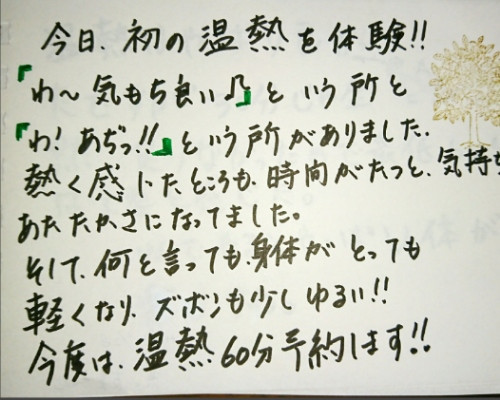 今日、初の温熱を体験!!
『わ〜気もち良い♪』という所と
『わ! あぢっ!!』という所がありました。
熱く感じたところも、時間がたつと、気持
あたたかさになってました。
そして、何と言っても、身体がとっても
軽くなり、ズボンも少しゆるい!!
今度は、温熱60分予約します!!